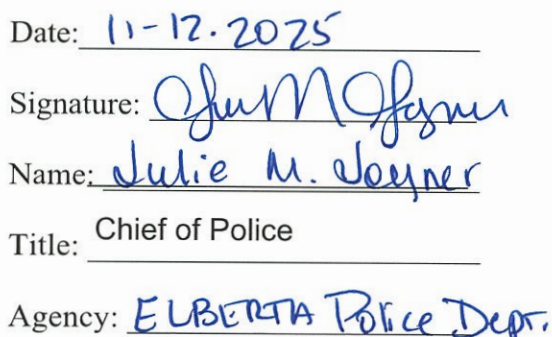 Date: 11-12.2025
Signature:
Name: Julie M. Joyner
Title: Chief of Police
Agency: ELBERTA Police Dept.